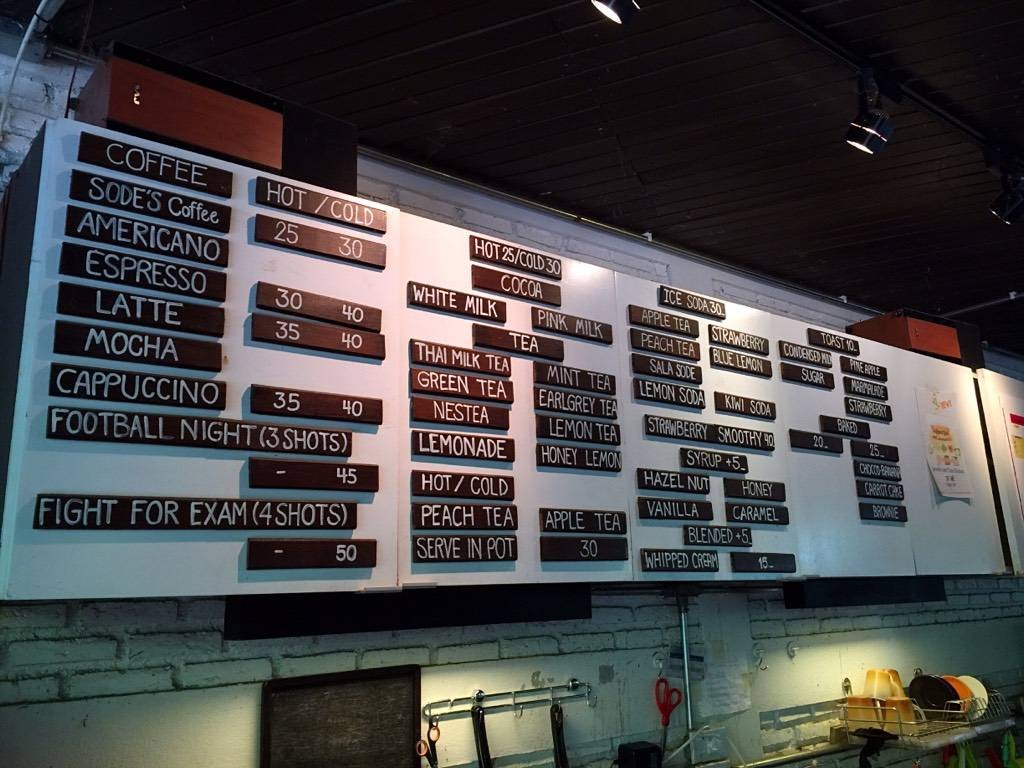 COFFEE
HOT / COLD
SODE'S Coffee
25 30
AMERICANO
ESPRESSO
LATTE
30 40
MOCHA
35 40
CAPPUCCINO
35 40
FOOTBALL NIGHT (3 SHOTS)
- 45
FIGHT FOR EXAM (4 SHOTS)
- 50
HOT 25/COLD 30
COCOA
WHITE MILK
PINK MILK
TEA
THAI MILK TEA
MINT TEA
GREEN TEA
EARLGREY TEA
NESTEA
LEMON TEA
LEMONADE
HONEY LEMON
HOT / COLD
PEACH TEA
APPLE TEA
SERVE IN POT
30
ICE SODA 30_
APPLE TEA
STRAWBERRY
PEACH TEA
BLUE LEMON
SALA SODE
LEMON SODA
KIWI SODA
STRAWBERRY SMOOTHY 40
SYRUP +5_
HAZEL NUT
HONEY
VANILLA
CARAMEL
BLENDED +5_
WHIPPED CREAM
15_
TOAST 10_
CONDENSED MILK
PINE APPLE
SUGAR
MARMALADE
STRAWBERRY
BAKED
20_
25_
CHOCCO-BANANA
CARROT CAKE
BROWNIE